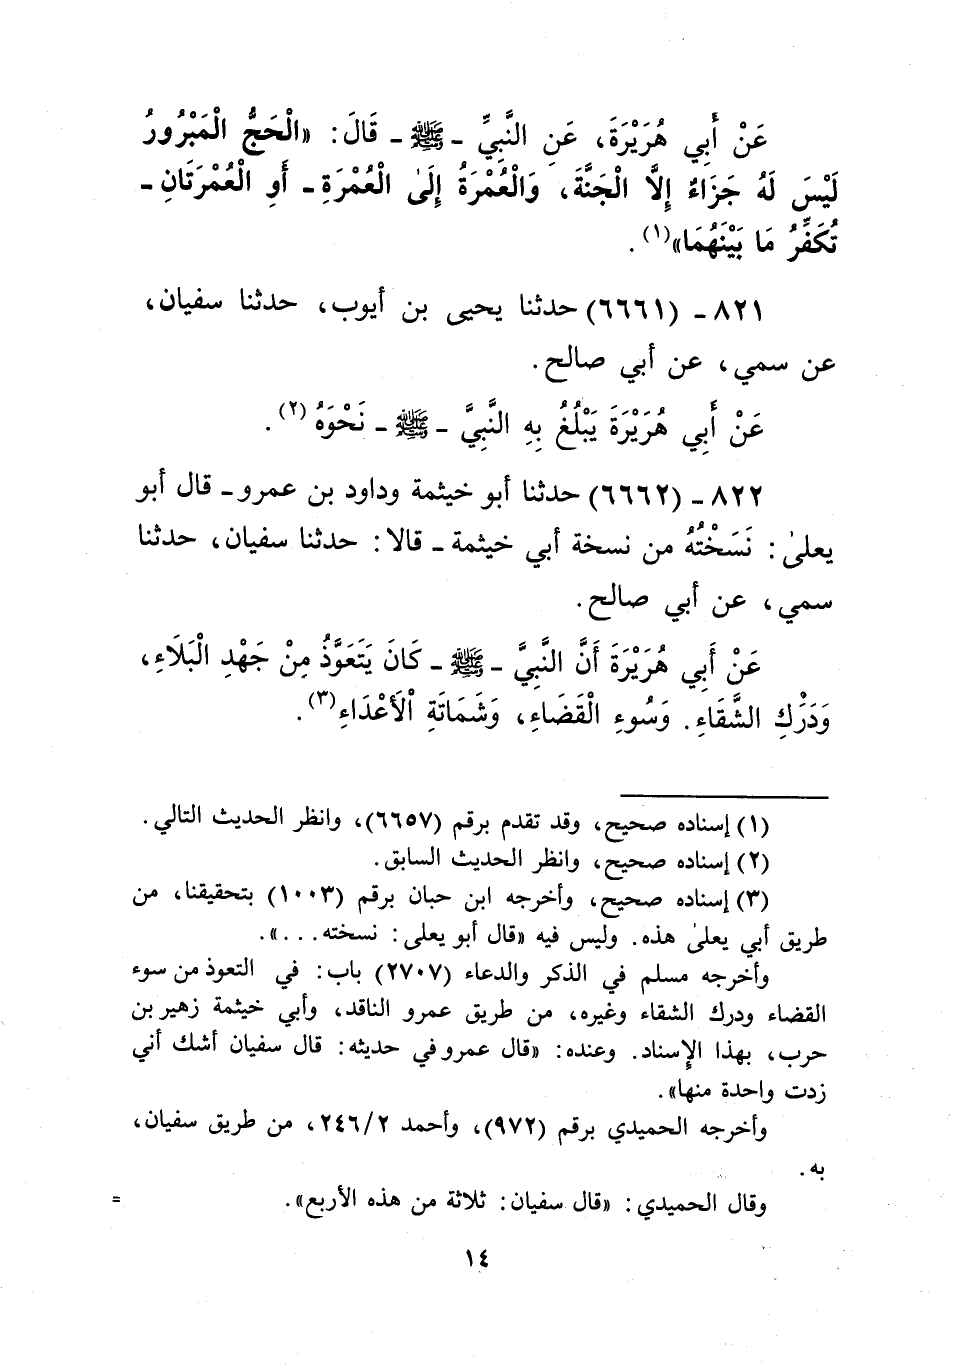 عَنْ أَبِي هُرَيْرَةَ، عَنِ النَّبِيِّ - ﷺ - قَالَ: «الْحَجُّ الْمَبْرُورُ
لَيْسَ لَهُ جَزَاءٌ إِلَّا الْجَنَّةَ، وَالْعُمْرَةُ إِلَىٰ الْعُمْرَةِ - أَوِ الْعُمْرَتَانِ -
تُكَفِّرُ مَا بَيْنَهُمَا»(١).
٨٢١ - (٦٦٦١) حدثنا يحيى بن أيوب، حدثنا سفيان،
عن سمي، عن أبي صالح.
عَنْ أَبِي هُرَيْرَةَ يَبْلُغُ بِهِ النَّبِيَّ - ﷺ - نَحْوَهُ(٢).
٨٢٢ - (٦٦٦٢) حدثنا أبو خيثمة وداود بن عمرو - قال أبو
يعلىٰ: نَسَخْتُهُ من نسخة أبي خيثمة - قالا: حدثنا سفيان، حدثنا
سمي، عن أبي صالح.
عَنْ أَبِي هُرَيْرَةَ أَنَّ النَّبِيَّ - ﷺ - كَانَ يَتَعَوَّذُ مِنْ جَهْدِ الْبَلَاءِ،
وَدَرَكِ الشَّقَاءِ. وَسُوءِ الْقَضَاءِ، وَشَمَاتَةِ الْأَعْدَاءِ(٣).
(١) إسناده صحيح، وقد تقدم برقم (٦٦٥٧)، وانظر الحديث التالي.
(٢) إسناده صحيح، وانظر الحديث السابق.
(٣) إسناده صحيح، وأخرجه ابن حبان برقم (١٠٠٣) بتحقيقنا، من
طريق أبي يعلىٰ هذه. وليس فيه «قال أبو يعلى: نسخته...».
وأخرجه مسلم في الذكر والدعاء (٢٧٠٧) باب: في التعوذ من سوء
القضاء ودرك الشقاء وغيره، من طريق عمرو الناقد، وأبي خيثمة زهير بن
حرب، بهذا الإسناد. وعنده: «قال عمرو في حديثه: قال سفيان أشك أني
زدت واحدة منها».
وأخرجه الحميدي برقم (٩٧٢)، وأحمد ٢٤٦/٢، من طريق سفيان،
به.
وقال الحميدي: «قال سفيان: ثلاثة من هذه الأربع».
=
١٤